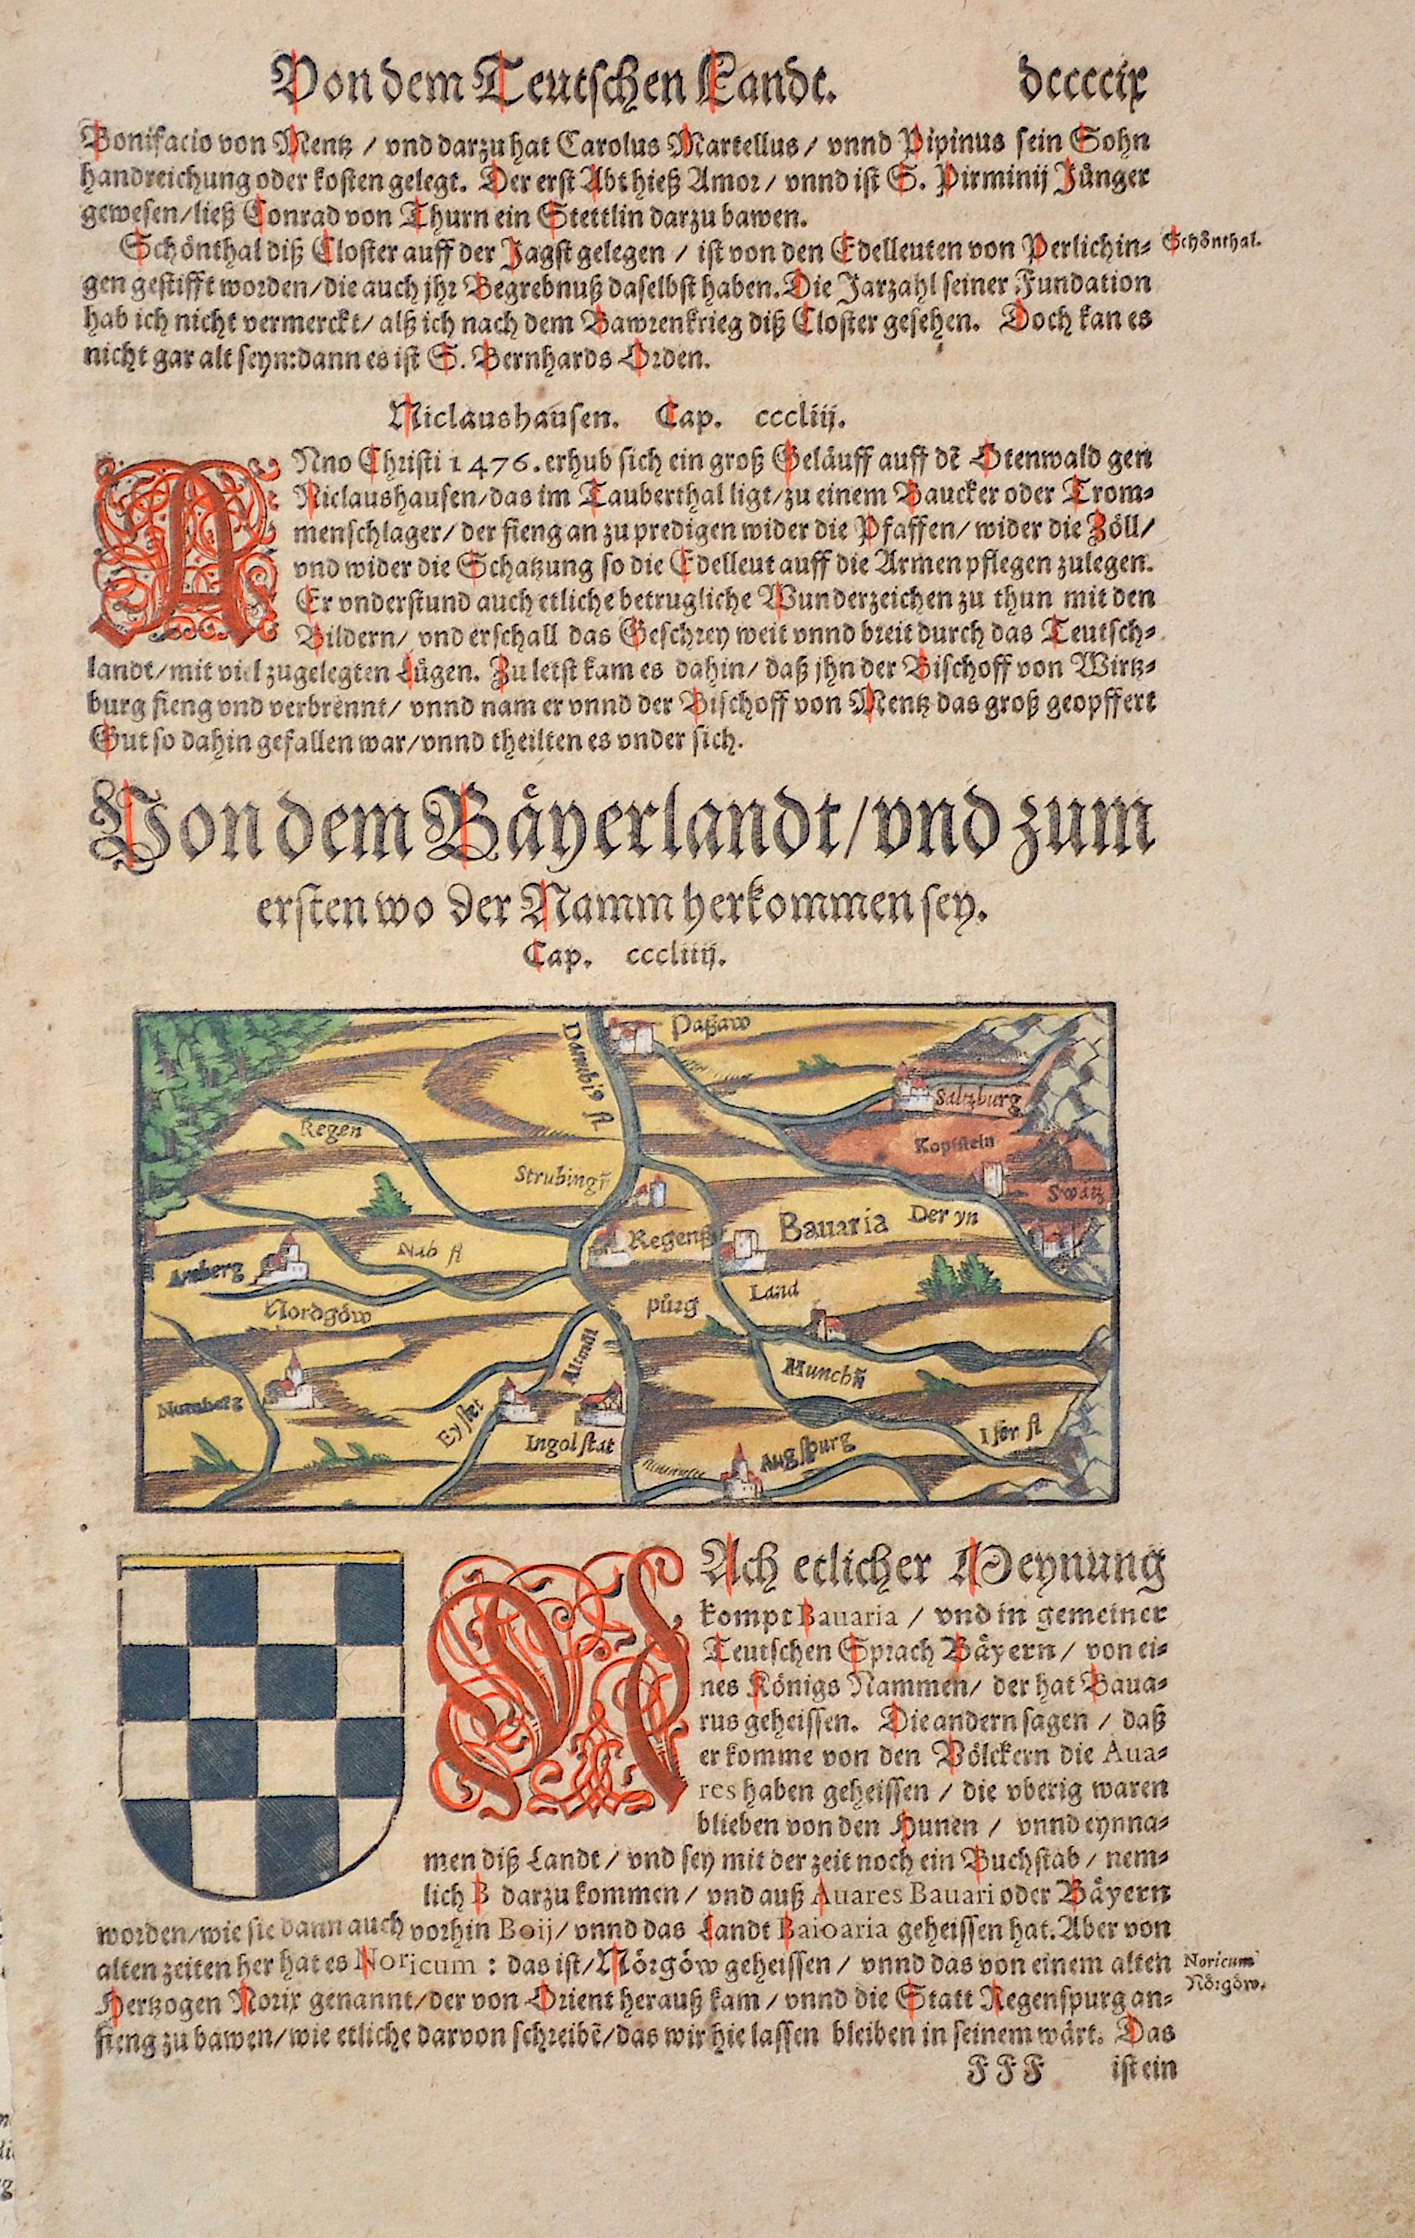 Von dem Teutschen Landt. dccccix
Bonifacio von Mentz / vnd darzu hat Carolus Martellus / vnnd Pipinus sein Sohn
handreichung oder kosten gelegt. Der erst Abt hieß Amor / vnnd ist S. Pirminij Jünger
gewesen / ließ Conrad von Thurn ein Stettlin darzu bawen.
Schönthal diß Closter auff der Jagst gelegen / ist von den Edelleuten von Perlichin-
Schönthal.
gen gestifft worden / die auch jhr Begrebnuß daselbst haben. Die Jarzahl seiner Fundation
hab ich nicht vermerckt / alß ich nach dem Bawrenkrieg diß Closter gesehen. Doch kan es
nicht gar alt seyn: dann es ist S. Bernhards Orden.
Niclaushausen. Cap. cccliij.
ANno Christi 1476. erhub sich ein groß Geläuff auff dē Otenwald gen
Niclaushausen / das im Tauberthal ligt / zu einem Baucker oder Trom-
menschlager / der fieng an zu predigen wider die Pfaffen / wider die Zöll /
vnd wider die Schatzung so die Edelleut auff die Armen pflegen zulegen.
Er vnderstund auch etliche betrugliche Wunderzeichen zu thun mit den
Bildern / vnd erschall das Geschrey weit vnnd breit durch das Teutsch-
landt / mit viel zugelegten Lügen. Zu letst kam es dahin / daß jhn der Bischoff von Wirtz-
burg fieng vnd verbrennt / vnnd nam er vnnd der Bischoff von Mentz das groß geopffert
Gut so dahin gefallen war / vnnd theilten es vnder sich.
Von dem Båyerlandt / vnd zum
ersten wo der Namm herkommen sey.
Cap. cccliiij.
Danubiꝰ fl
Paßaw
Saltzburg
Regen
Kopffstein
Strubingē
Swatz
Bauaria
Der yn
Regenß
Nab fl
Amberg
Land
Nordgöw
pürg
Altmül
Munchē
Nurnberg
Eystet
Ingolstat
Iser fl
Augspurg
NAch etlicher Meynung
kompt Bauaria / vnd in gemeiner
Teutschen Sprach Båyern / von ei-
nes Königs Nammen / der hat Baua-
rus geheissen. Die andern sagen / daß
er komme von den Völckern die Aua-
res haben geheissen / die vberig waren
blieben von den Hunen / vnnd eynna-
men diß Landt / vnd sey mit der zeit noch ein Buchstab / nem-
lich B darzu kommen / vnd auß Auares Bauari oder Båyern
worden / wie sie dann auch vorhin Boij / vnnd das Landt Baioaria geheissen hat. Aber von
alten zeiten her hat es Noricum : das ist / Nörgöw geheissen / vnnd das von einem alten
Noricum
Nörgöw.
Hertzogen Norix genannt / der von Orient herauß kam / vnnd die Statt Regenspurg an-
fieng zu bawen / wie etliche darvon schreibē / das wir hie lassen bleiben in seinem wärt. Das
FFF ist ein